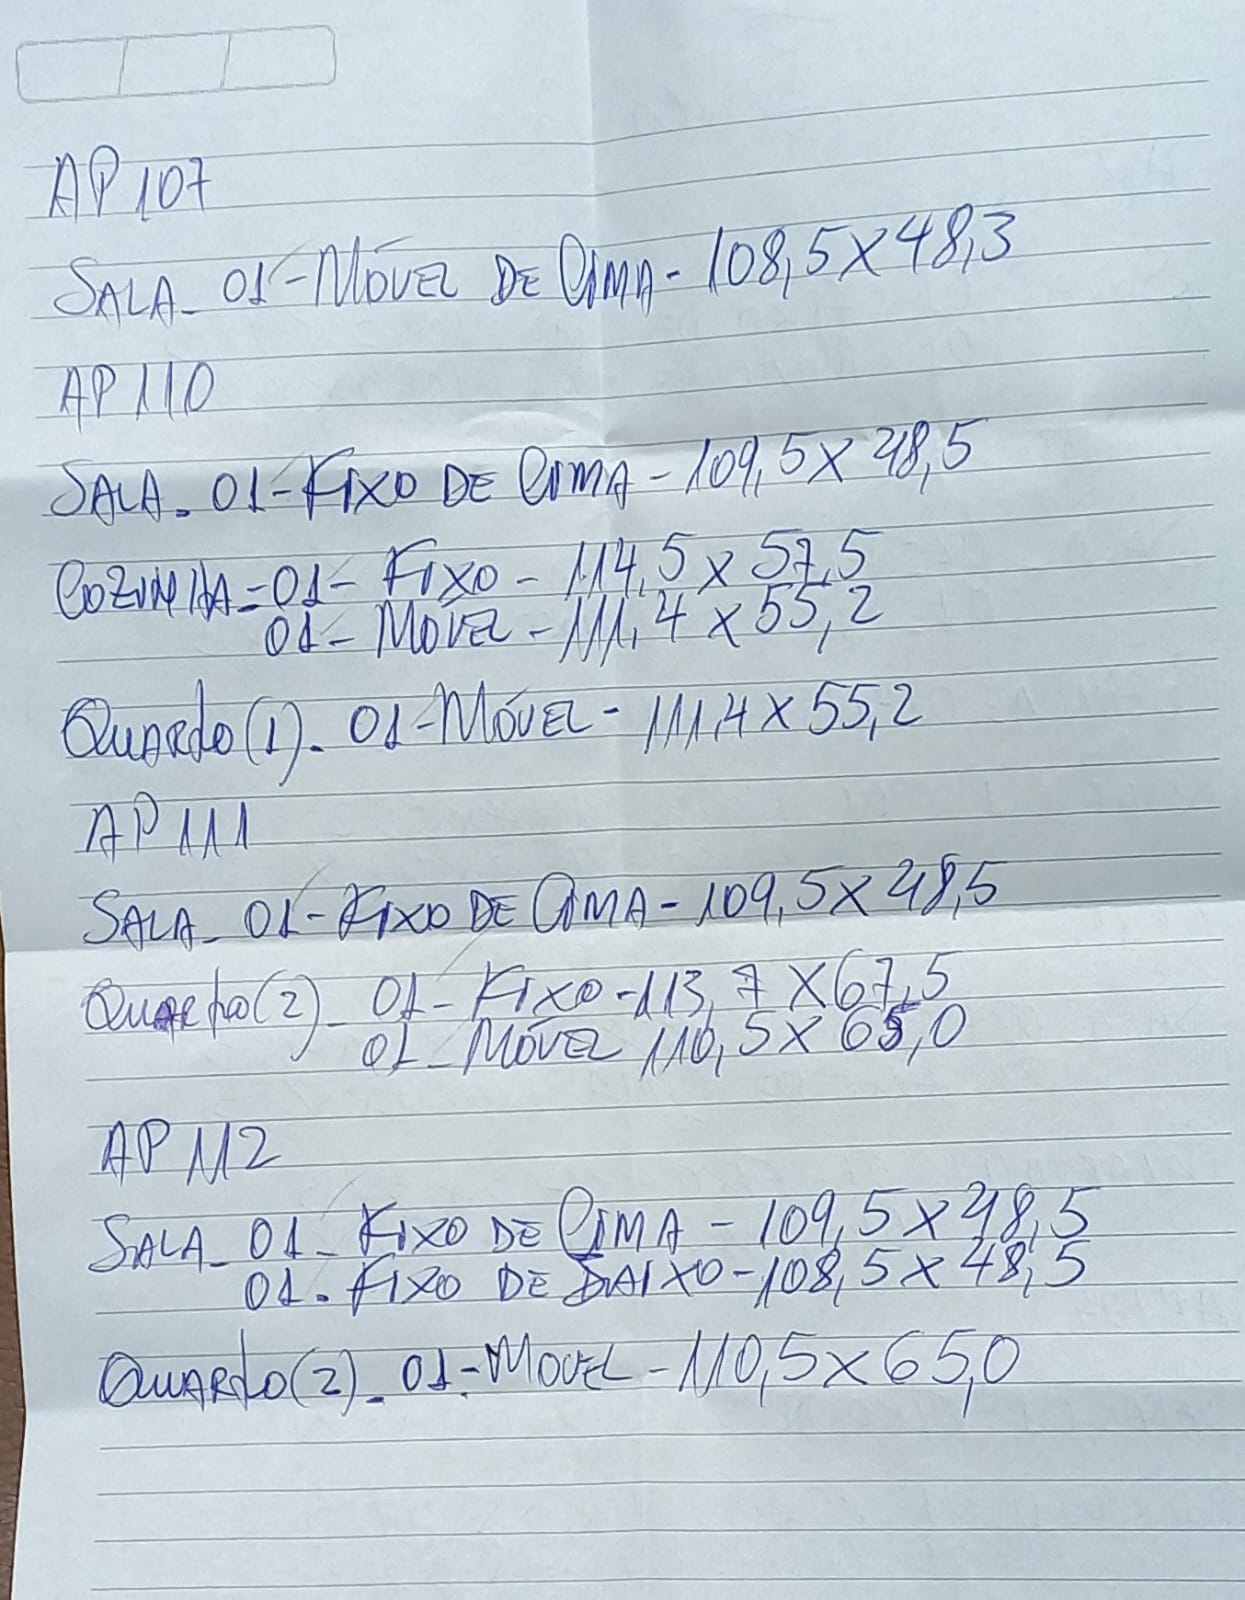 AP 107
SALA - 01 - MÓVEL DE CIMA - 108,5 X 48,3
AP 110
SALA - 01 - FIXO DE CIMA - 109,5 X 48,5
COZINHA = 01 - FIXO - 114,5 X 57,5
01 - MÓVEL - 111,4 X 55,2
QUARTO (1) - 01 - MÓVEL - 111,4 X 55,2
AP 111
SALA - 01 - FIXO DE CIMA - 109,5 X 48,5
QUARTO (2) - 01 - FIXO - 113,7 X 67,5
01 - MÓVEL 110,5 X 65,0
AP 112
SALA - 01 - FIXO DE CIMA - 109,5 X 48,5
01 - FIXO DE BAIXO - 108,5 X 48,5
QUARTO (2) - 01 - MOVEL - 110,5 X 65,0